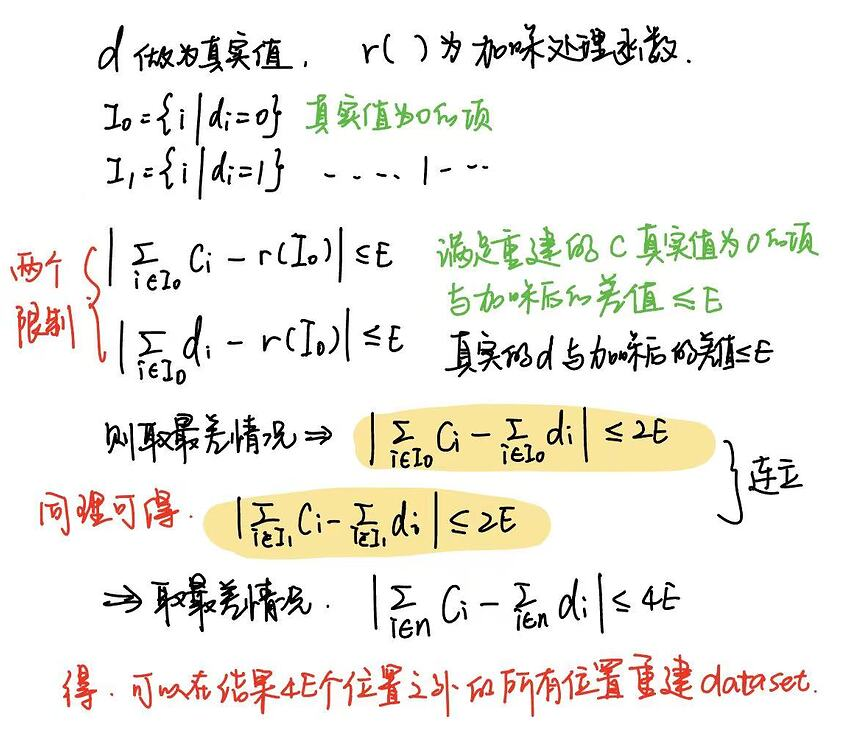 d 做为真实值, r( ) 为加噪处理函数.
I₀={i|dᵢ=0} 真实值为0的项
I₁={i|dᵢ=1} ---- 1 ---
两个限制
|∑_{i∈I₀} Cᵢ - r(I₀)| ≤ E 满足重建的 C 真实值为0的项
与加噪后的差值 ≤ E
|∑_{i∈I₀} dᵢ - r(I₀)| ≤ E 真实的d与加噪后的差值≤E
则取最差情况 ⇒ |∑_{i∈I₀} Cᵢ - ∑_{i∈I₀} dᵢ| ≤ 2E
同理可得. |∑_{i∈I₁} Cᵢ - ∑_{i∈I₁} dᵢ| ≤ 2E } 连立
⇒ 取最差情况. |∑_{i∈n} Cᵢ - ∑_{i∈n} dᵢ| ≤ 4E
得. 可以在结果4E个位置之外的所有位置重建dataset.